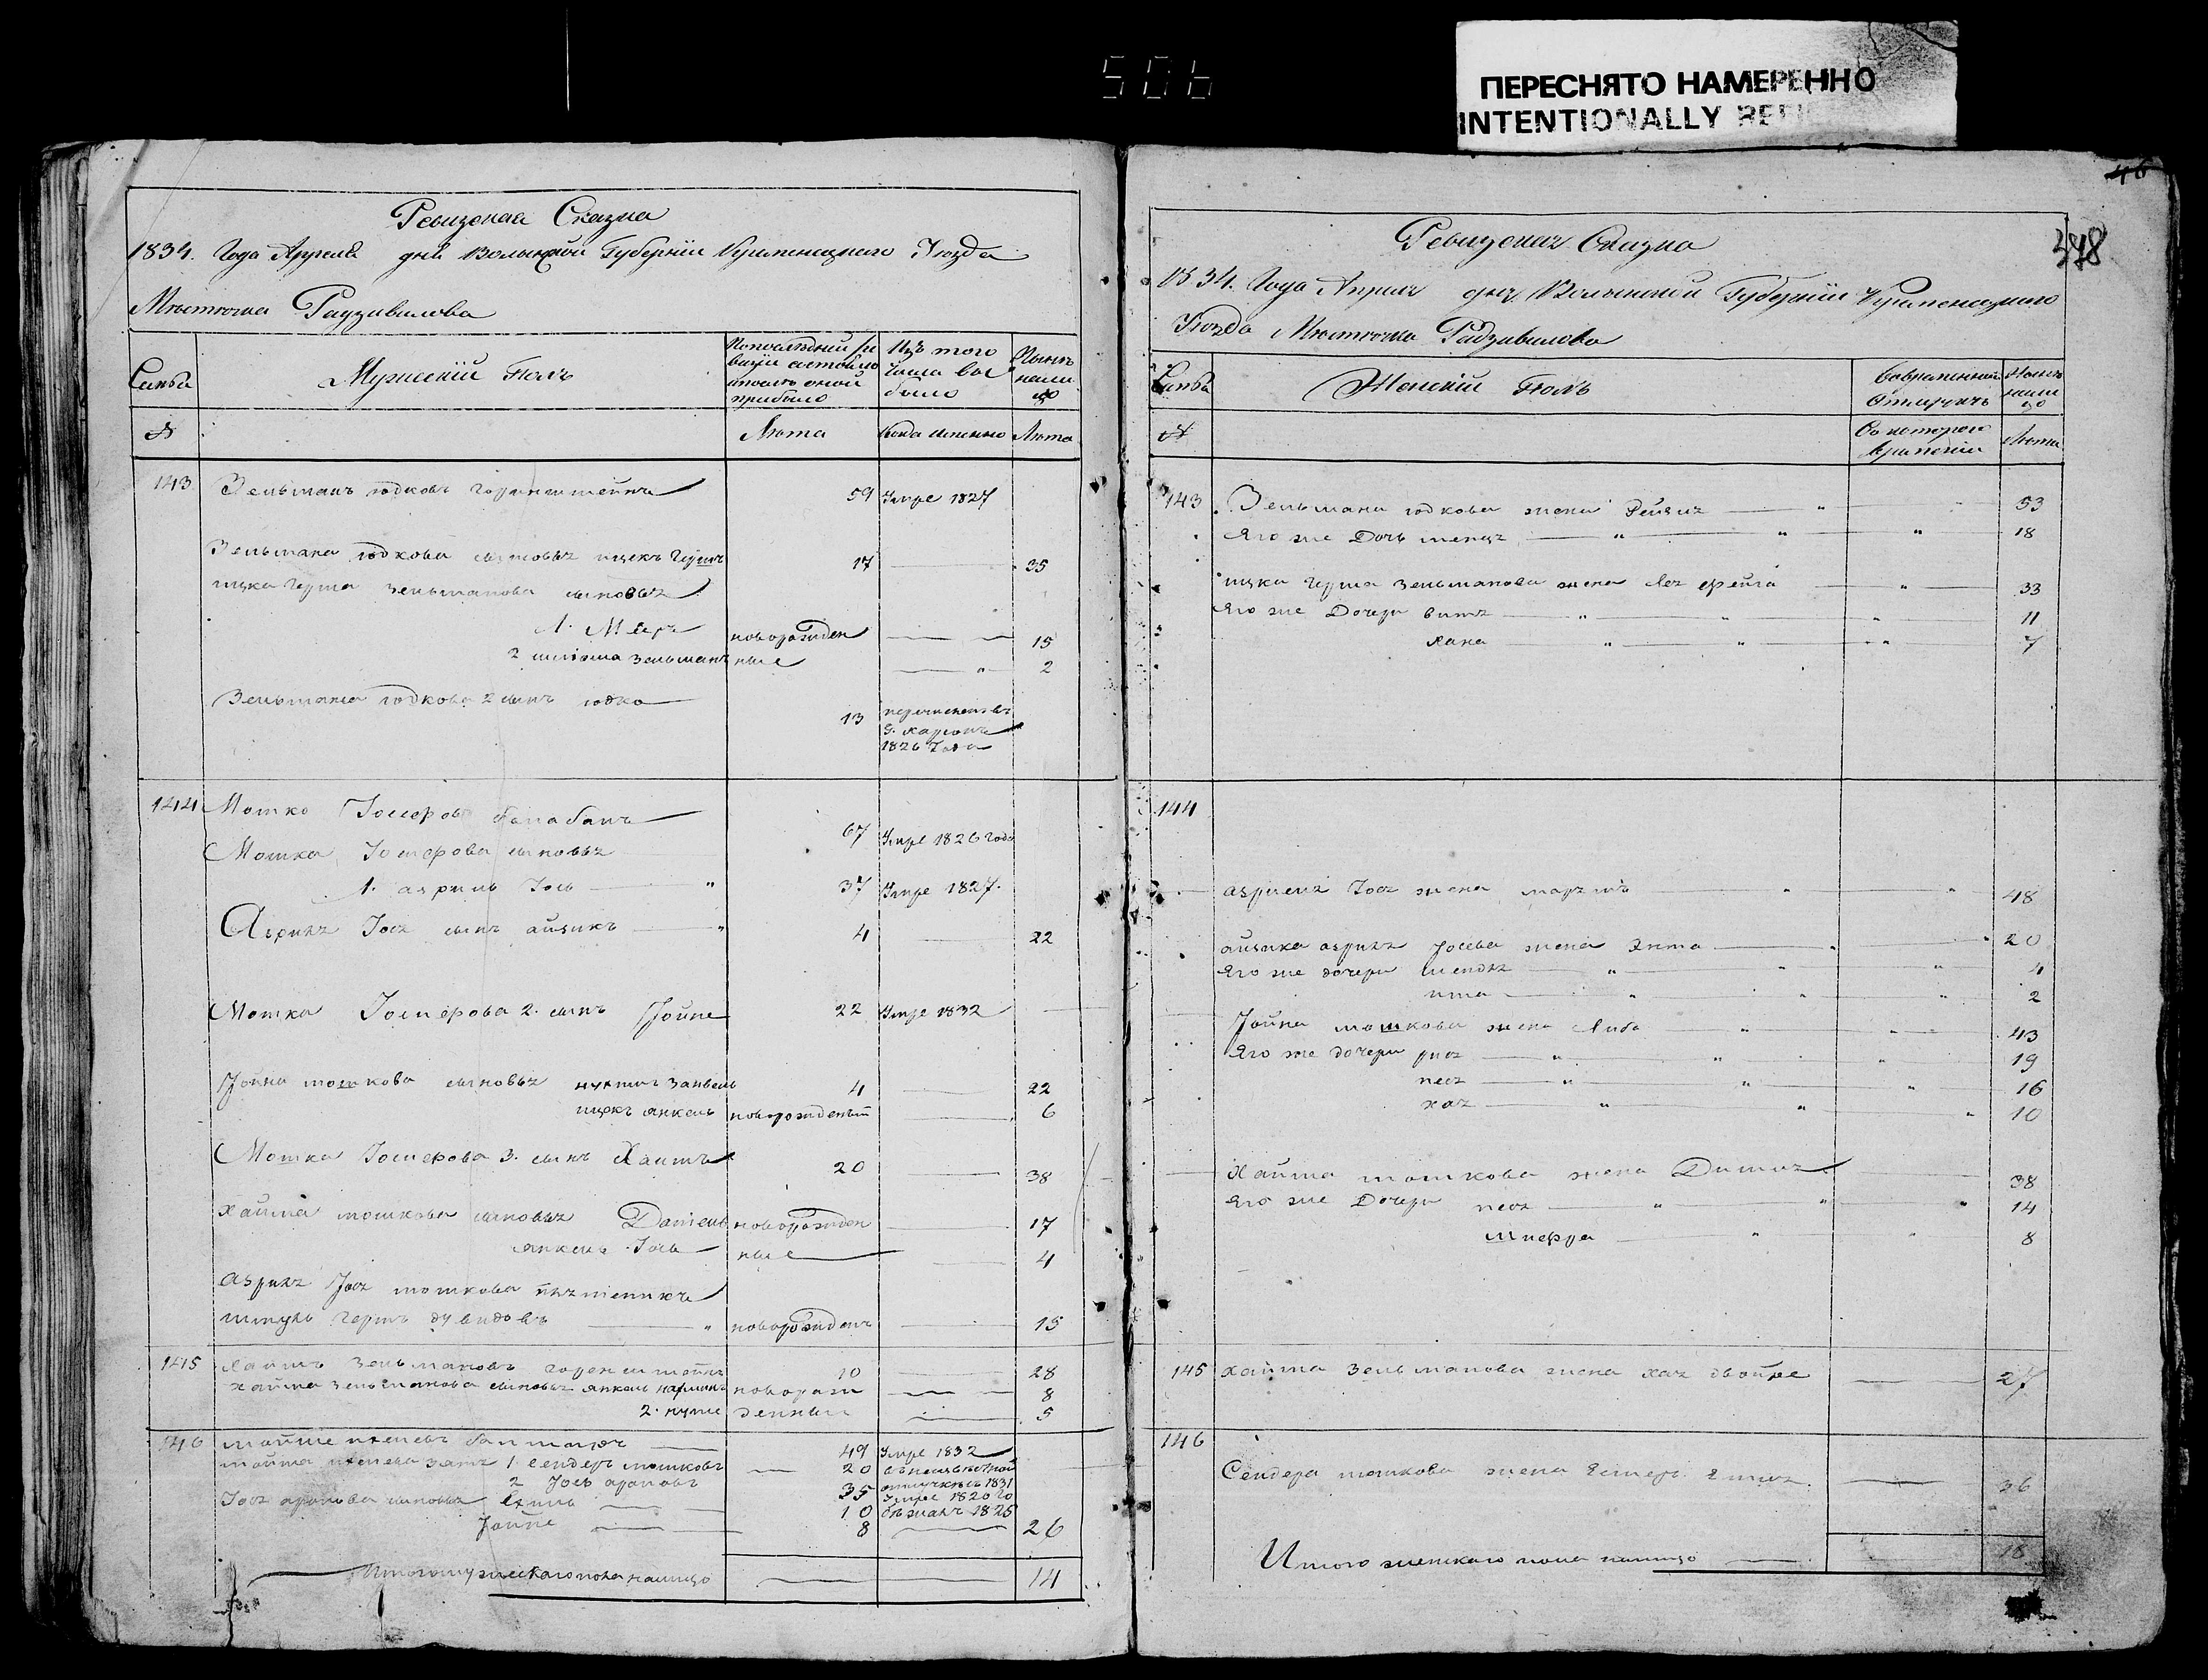 506
ПЕРЕСНЯТО НАМЕРЕННО
INTENTIONALLY
Ревизская Сказка
1834. Года Апреля дня Волынской Губернии Кременецкого Уезда
Местечка Радзивилова
Семьи
Мужеский Полъ
По последней ре
визии состояло
и после оной
прибыло
Изъ того
числа вы
было
Ныне
нали
цо
№
Лета
Когда именно
Лета
143
Зельманъ юдковъ горинштейнъ
59
Умре 1827
Зельмана юдкова сыновья ицекъ Герш
17
35
ицка герша зельманова сыновья
1. Меер
новорожден
15
2 шлиома зельман
ные
2
Зельмана юдкова 2 сынъ юдко
13
перечислен въ
1826 Года
144
Мошко Иосеров балабанъ
67
Умре 1826 года
Мошка Иосерова сыновья
1. азриль Иось
37
Умре 1827.
Азриля Иося сынъ айзикъ
4
22
Мошка Иосерова 2. сынъ Иойне
22
Умре 1832
Иойна мошкова сыновья занвель
4
22
ицекъ янкель
новорожденый
6
Мошка Иосерова 3. сынъ Хаимъ
20
38
Хайма мошкова сыновья Даниель
новорожден
17
янкель Иось
ные
4
Азриля Иося мошкова племенникъ
шмуль герш дувидовъ
новорожденъ
15
145
Хаимъ Зельмановъ горенштейнъ
10
28
хайма Зельманова сыновья янкель
новорож
8
2.
денныи
5
146
49
Умре 1832
1. сендеръ мошковъ
20
въ неизвестной
отлучке съ 1831
2 Иось ароновъ
35
Умре 1820 го
Иося аронова сыновья
10
бежалъ 1825
Иойне
8
26
Итого мужескаго пола налицо
14
46
378
Ревизская Сказка
1834. Года Апреля дня Волынской Губернии Кременецкого
Уезда Местечка Радзивилова
Семьи
Женский Полъ
Во временной
отлучке
Ныне
нали
цо
№
Съ которого
времени
Лета
143
Зельмана юдкова жена Рейзя
53
Его же Дочь шенця
18
ицка герша зельманова жена Лея фейга
33
Его же Дочери витя
11
хана
7
144
азриеля Иося жена марямъ
48
айзика азриля Иосева жена Энта
20
Его же дочери шендля
4
ита
2
Иойна мошкова жена Либа
43
Его же дочери рися
19
песя
16
хая
10
Хайма мошкова жена
38
Его же Дочери песя
14
Шифра
8
145
хайма Зельманова жена хая двойре
27
146
Сендера мошкова жена Естеръ
36
Итого женскаго пола налицо
16